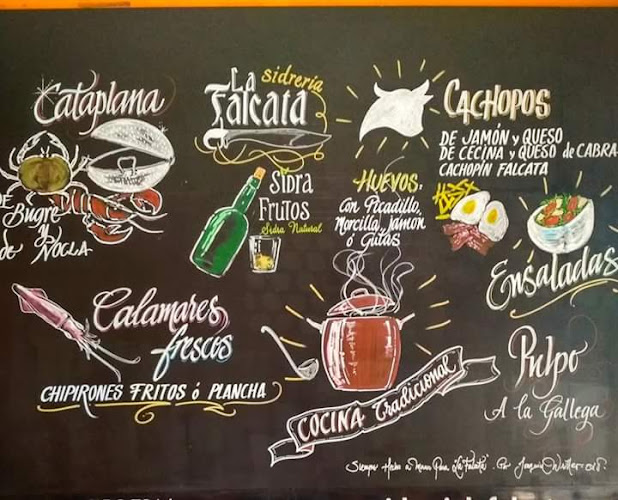 Cataplana
DE Bugre
y
de Nocla
La sidrería
Falcata
Sidra
Frutos
Sidra Natural
Huevos.
Con Picadillo,
Morcilla, Jamón
ó Gulas
CACHOPOS
DE JAMÓN y QUESO
DE CECINA y QUESO de CABRA
CACHOPÍN FALCATA
Ensaladas
Calamares
frescos
CHIPIRONES FRITOS ó PLANCHA
COCINA Tradicional
Pulpo
A la Gallega
Siempre Hecho a mano Para "La Falcata"